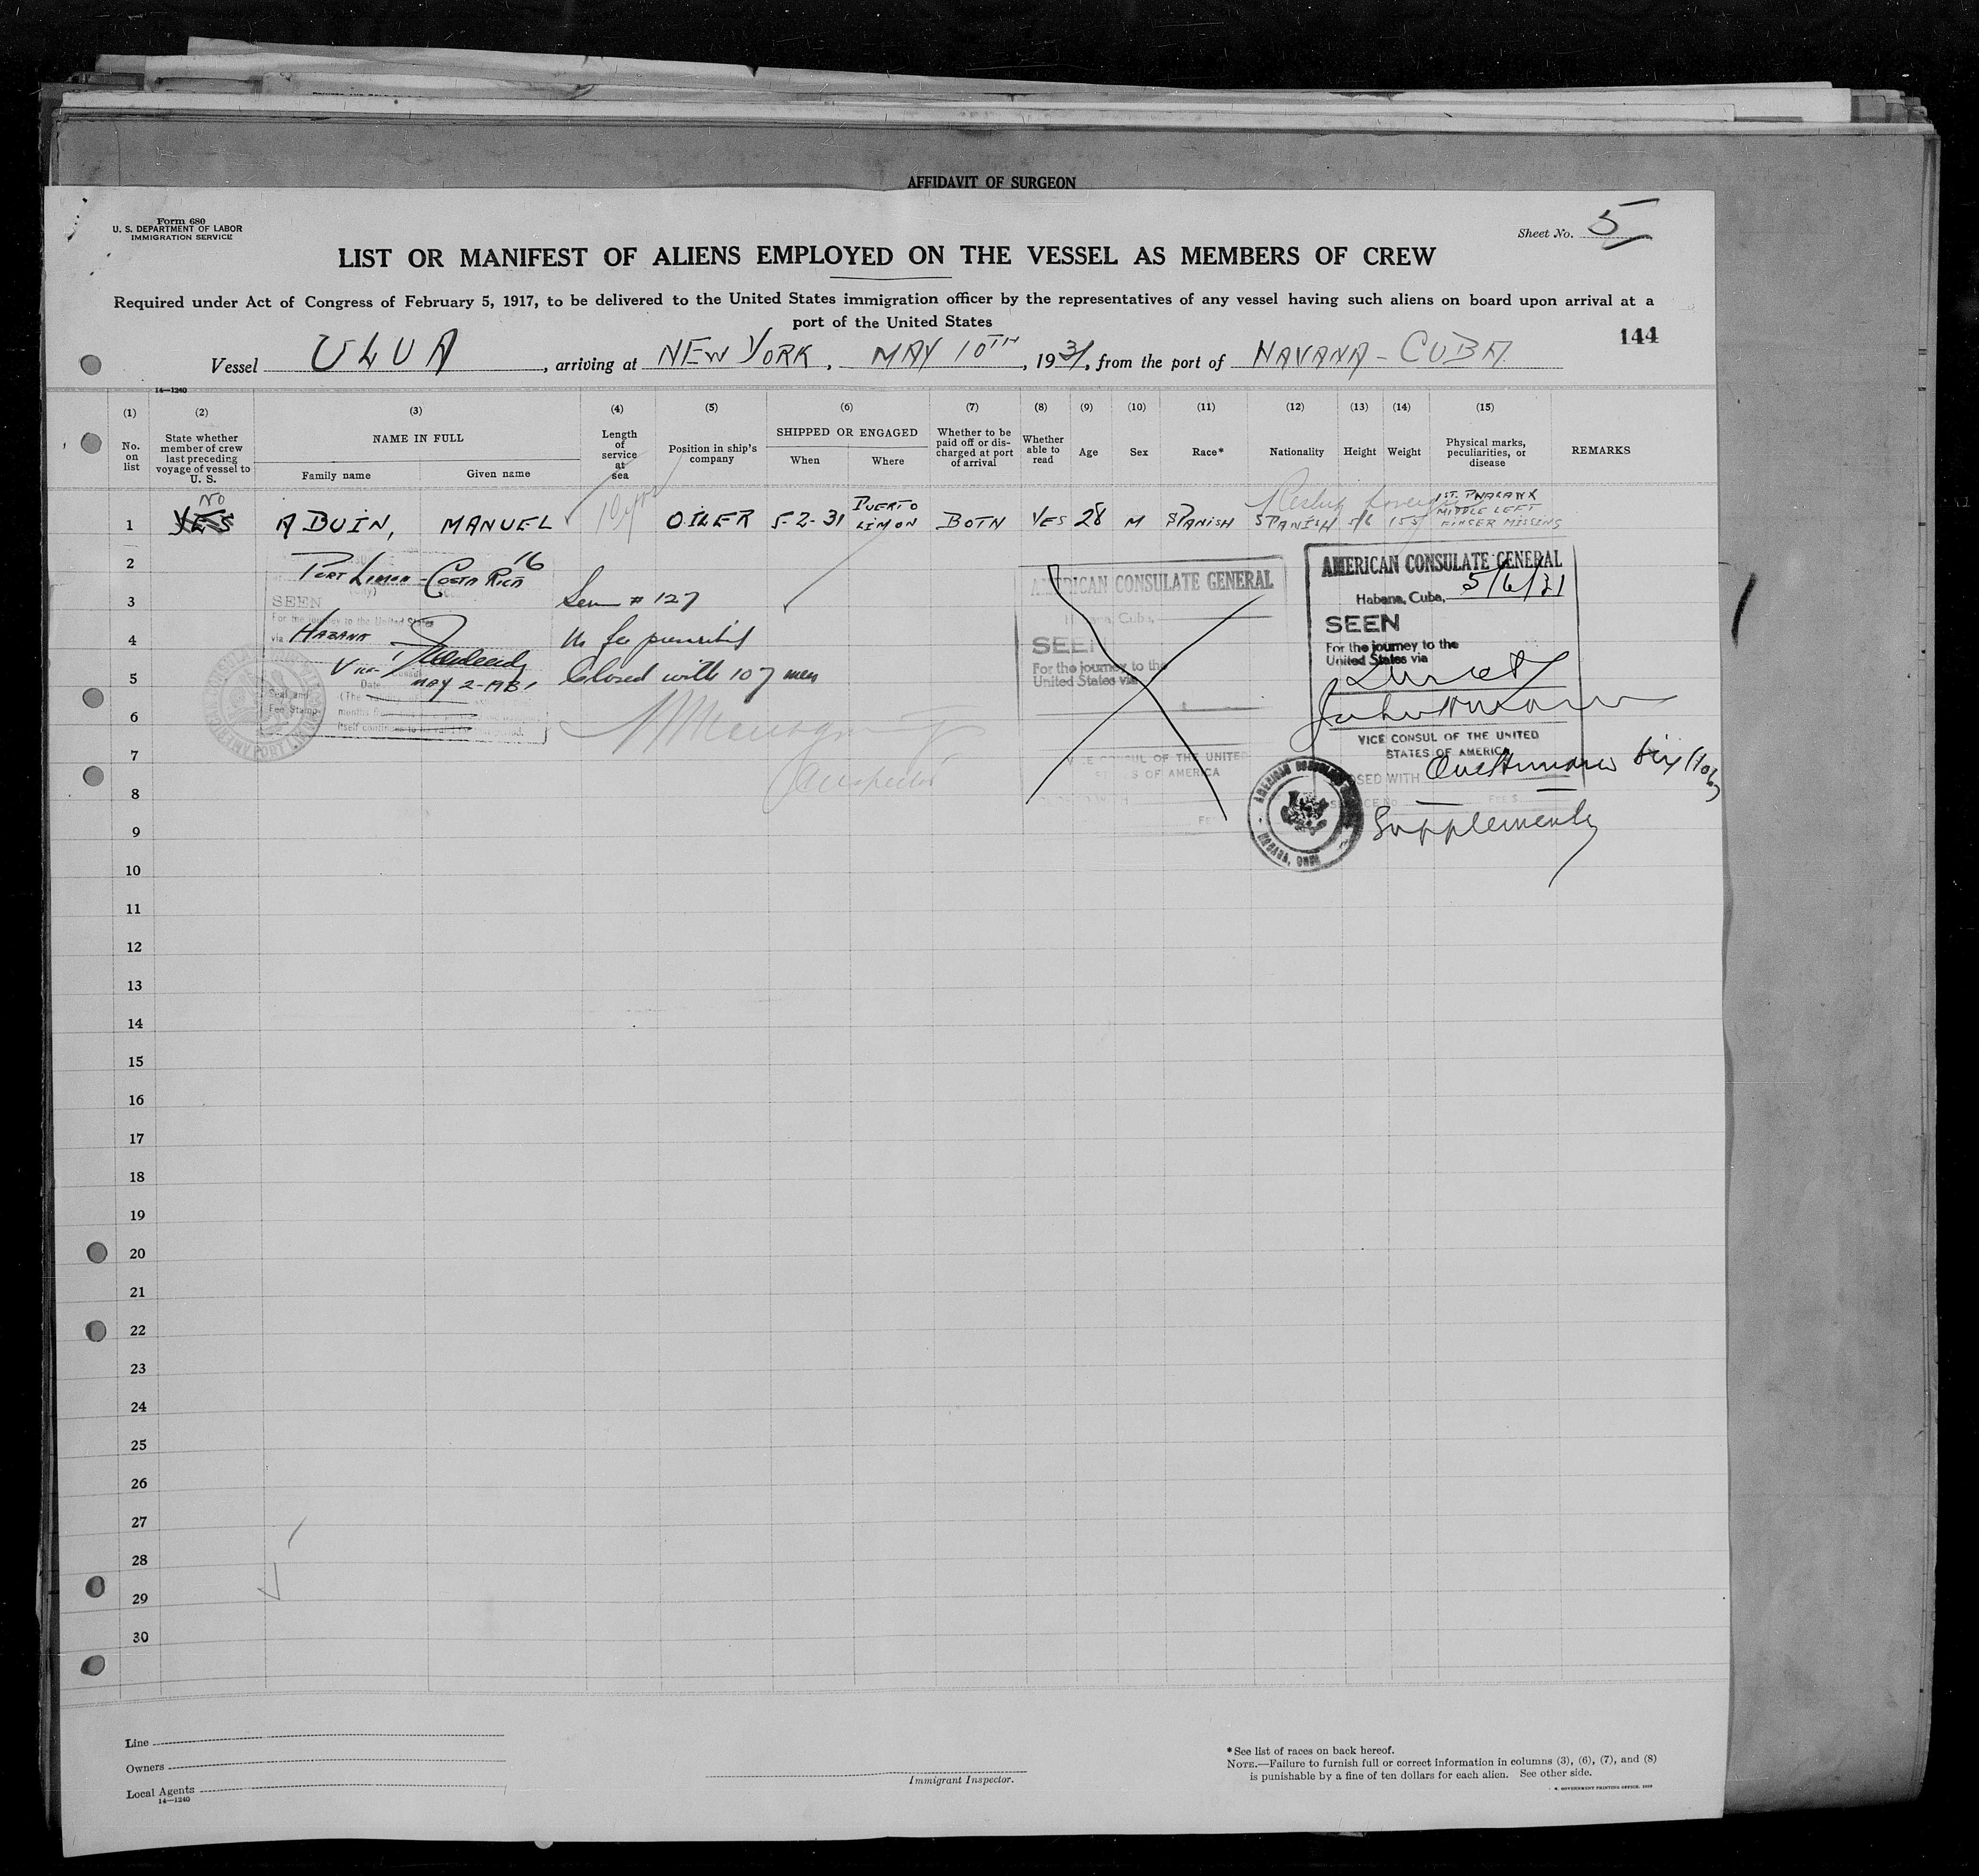 AFFIDAVIT OF SURGEON
Form 680
U. S. DEPARTMENT OF LABOR
IMMIGRATION SERVICE
Sheet No. 5
LIST OR MANIFEST OF ALIENS EMPLOYED ON THE VESSEL AS MEMBERS OF CREW
Required under Act of Congress of February 5, 1917, to be delivered to the United States immigration officer by the representatives of any vessel having such aliens on board upon arrival at a
port of the United States
144
Vessel ULUA, arriving at NEW YORK, MAY 10TH, 1931, from the port of HAVANA - CUBA
14—1240
(1) (2) (3) (4) (5) (6) (7) (8) (9) (10) (11) (12) (13) (14) (15)
No. on list
State whether member of crew last preceding voyage of vessel to U. S.
NAME IN FULL
Family name
Given name
Length of service at sea
Position in ship's company
SHIPPED OR ENGAGED
When
Where
Whether to be paid off or discharged at port of arrival
Whether able to read
Age
Sex
Race*
Nationality
Height
Weight
Physical marks, peculiarities, or disease
REMARKS
No
1 YES ABUIN, MANUEL 10 yrs OILER 5-2-31 PUERTO LIMON BOTH YES 28 M SPANISH SPANISH 5/6 155 1ST. PHALANX MIDDLE LEFT FINGER MISSING
2
3
4
5
6
7
8
9
10
11
12
13
14
15
16
17
18
19
20
21
22
23
24
25
26
27
28
29
30
PORT LIMON - COSTA RICA 16
SEEN
For the journey to the United States
via HABANA
Vice
Consul
Date MAY 2-1931
Seal and
Fee Stamp
(The
months
itself continues to be valid for
# 127
No fee prescribed
Closed with 107 men
Inspector
AMERICAN CONSULATE GENERAL
Habana, Cuba,
SEEN
For the journey to the
United States via
VICE CONSUL OF THE UNITED
STATES OF AMERICA
AMERICAN CONSULATE GENERAL
Habana, Cuba, 5/6/31
SEEN
For the journey to the
United States via
Direct
VICE CONSUL OF THE UNITED
STATES OF AMERICA
CLOSED WITH
SERVICE No. FEE $
Supplementy
AMERICAN CONSULATE GENERAL
HABANA, CUBA
Line
Owners
Local Agents
14—1240
Immigrant Inspector.
*See list of races on back hereof.
NOTE.—Failure to furnish full or correct information in columns (3), (6), (7), and (8)
is punishable by a fine of ten dollars for each alien. See other side.
GOVERNMENT PRINTING OFFICE